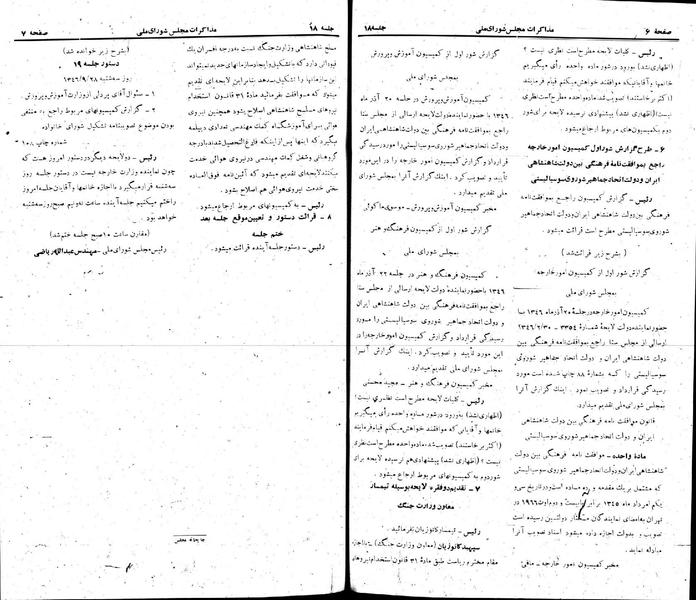 صفحه ۶
مذاکرات مجلس شورای ملی
جلسه ۱۸
رئیس ـ کلیات لایحه مطرح است نظری نیست ؟
(اظهاری نشد) بورود در شور ماده واحده رأی میگیریم
خانمها و آقایانیکه موافقند خواهش میکنم قیام فرمایند
(اکثر برخاستند) تصویب شد. ماده واحده مطرح است نظری
نیست؟ (اظهاری نشد) پیشنهادی نرسیده لایحه برای شور
دوم بکمیسیون‌های مربوط ارجاع میشود.
۶ ـ طرح گزارش شور اول کمیسیون امور خارجه
راجع بموافقت‌نامه فرهنگی بین دولت شاهنشاهی
ایران و دولت اتحاد جماهیر شوروی سوسیالیستی
رئیس ـ گزارش شور اول راجع بموافقت‌نامه
فرهنگی بین دولت شاهنشاهی ایران و دولت اتحاد جماهیر
شوروی سوسیالیستی مطرح است قرائت میشود.
(بشرح زیر قرائت شد)
گزارش شور اول از کمیسیون امور خارجه
بمجلس شورای ملی
کمیسیون امور خارجه در جلسه ۲۰ آذر ماه ۱۳۴۶ با
حضور نماینده دولت لایحه شماره ۳۳۵۴ ـ ۱۳۴۶/۲/۳۰
ارسالی از مجلس سنا راجع بموافقت‌نامه فرهنگی بین دولت
شاهنشاهی ایران و دولت اتحاد جماهیر شوروی
سوسیالیستی را که بشماره ۸۸ چاپ شده است مورد
رسیدگی قرارداد و تصویب نمود. اینک گزارش آنرا
بمجلس شورای ملی تقدیم میدارد.
قانون موافقت نامه فرهنگی بین دولت شاهنشاهی
ایران و دولت اتحاد جماهیر شوروی سوسیالیستی
ماده واحده ـ موافقت نامه فرهنگی بین دولت
شاهنشاهی ایران و دولت اتحاد جماهیر شوروی سوسیالیستی
که مشتمل بر یک مقدمه و ده ماده است و در تاریخ سی و
یکم امرداد ماه ۱۳۴۵ برابر با بیست و دوم اوت ۱۹۶۶ در
تهران به امضای نمایندگان مختار دولتین رسیده است
تصویب و بدولت اجازه داده میشود اسناد تصویب آنرا
مبادله نماید.
مخبر کمیسیون امور خارجه ـ
گزارش شور اول از کمیسیون آموزش و پرورش
بمجلس شورای ملی
کمیسیون آموزش و پرورش در جلسه ۲۰ آذر ماه
۱۳۴۶ با حضور نماینده دولت لایحه ارسالی از مجلس سنا
راجع بموافقت‌نامه فرهنگی بین دولت شاهنشاهی ایران
و دولت اتحاد جماهیر شوروی سوسیالیستی را مورد رسیدگی
قرارداد و گزارش کمیسیون امور خارجه را در این مورد
تأیید و تصویب کرد. اینک گزارش آنرا بمجلس شورای
ملی تقدیم میدارد.
مخبر کمیسیون آموزش و پرورش ـ موسوی ماکوئی
گزارش شور اول از کمیسیون فرهنگ و هنر
بمجلس شورای ملی
کمیسیون فرهنگ و هنر در جلسه ۲۲ آذر ماه
۱۳۴۶ با حضور نماینده دولت لایحه ارسالی از مجلس سنا
راجع بموافقت‌نامه فرهنگی بین دولت شاهنشاهی ایران
و دولت اتحاد جماهیر شوروی سوسیالیستی را مورد
رسیدگی قرارداد و گزارش کمیسیون امور خارجه را در
این مورد تأیید و تصویب کرد. اینک گزارش آنرا
بمجلس شورای ملی تقدیم میدارد.
مخبر کمیسیون فرهنگ و هنر ـ مجید محسنی
رئیس ـ کلیات لایحه مطرح است نظری نیست؟
(اظهاری نشد) بورود در شور ماده واحده رأی میگیریم
خانمها و آقایانی که موافقند خواهش میکنم قیام فرمایند
(اکثر برخاستند) تصویب شد. ماده واحده مطرح است نظری
نیست؟ (اظهاری نشد) پیشنهادی هم نرسیده لایحه برای
شور دوم به کمیسیون‌های مربوط ارجاع میشود.
۷ ـ تقدیم دو فقره لایحه بوسیله تیمسار
معاون وزارت جنگ
رئیس ـ تیمسار کاتوزیان بفرمائید.
سپهبد کاتوزیان (معاون وزارت جنگ) ـ با اجازه
مقام محترم ریاست طبق ماده ۳۱ قانون استخدام نیروهای
جلسه ۱۸
مذاکرات مجلس شورای ملی
صفحه ۷
مسلح شاهنشاهی وزارت جنگ
این سازمانها را میدهد بنابراین لایحه‌ای تقدیم
میشود که موافقت بفرمائید ماده ۳۱ قانون استخدام
نیروهای مسلح شاهنشاهی اصلاح بشود همچنین نیروی
هوائی برای آموزشگاه کمک مهندسی خود تعدادی دیپلمه
میگیرد که اینها پس از اینکه فارغ التحصیل شدند با درجه
گروهبانی و شغل کمک مهندسی در نیروی هوائی خدمت
میکنند لایحه‌ای تقدیم میشود که آئین نامه فوق العاده
سختی خدمت نیروی هوائی هم اصلاح بشود.
رئیس ـ به کمیسیونهای مربوط ارجاع میشود
۸ ـ قرائت دستور و تعیین موقع جلسه بعد
ختم جلسه
رئیس ـ دستور جلسه آینده قرائت میشود.
(بشرح زیر خوانده شد)
دستور جلسه ۱۹
روز سه‌شنبه ۱۳۴۶/۹/۲۸
۱ ـ سئوال آقای پردلی از وزارت آموزش و پرورش.
۲ ـ گزارش کمیسیونهای مربوط راجع به منتفی
بودن موضوع تصویبنامه تشکیل شورای خانواده
شماره چاپ ۱۰۸
رئیس ـ دو لایحه دیگر در دستور امروز هست که
چون نماینده وزارت خارجه نیست در دستور جلسه روز
سه‌شنبه قرار میگیرد با اجازه خانمها و آقایان جلسه امروز
را ختم میکنیم جلسه آینده ساعت نه و نیم صبح روز سه‌شنبه
خواهد بود.
(مقارن ساعت ۱۰ صبح جلسه ختم شد)
رئیس مجلس شورای ملی ـ مهندس عبدالله ریاضی
چاپخانه مجلس